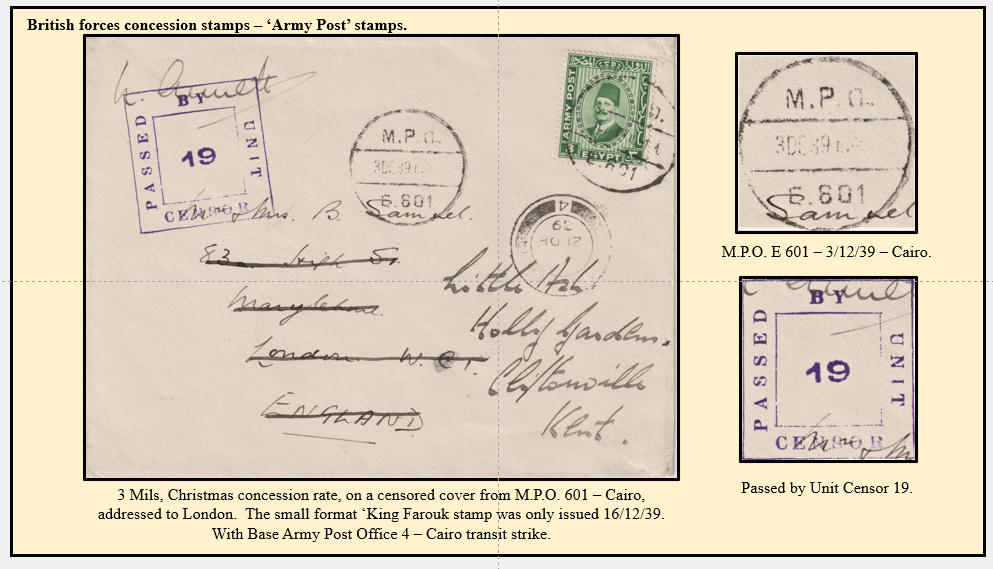 British forces concession stamps – ‘Army Post’ stamps.
PASSED BY UNIT CENSOR
19
M.P.O.
3DE39
E.601
ARMY POST
EGYPT
E.601
4
39
Mrs. B. Samuel.
83 High St.
Marylebone
London W.C.1.
ENGLAND
Little
Holly Gardens.
Cliftonville
Kent.
M.P.O.
3DE39
E.601
Samuel
M.P.O. E 601 – 3/12/39 – Cairo.
PASSED BY UNIT CENSOR
19
Passed by Unit Censor 19.
3 Mils, Christmas concession rate, on a censored cover from M.P.O. 601 – Cairo,
addressed to London. The small format ‘King Farouk stamp was only issued 16/12/39.
With Base Army Post Office 4 – Cairo transit strike.